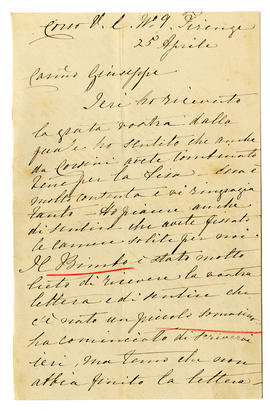 Corso V. E. Nº 9. Firenze
25 Aprile
Carino Giuseppe
Ieri ho ricevuto
la grata vostra dalla
quale ho sentito che anche
da Cossini avete combinato
bene per la
molto contenta e vi ringrazio
tanto - Ho piacere anche
di sentire che avete fissato
le camere solite per noi.
Il Bimbo è stato molto
lieto di ricevere la vostra
lettera e di sentire che
c'è nato un piccolo somarino
ha cominciato di scrivervi
ieri, ma temo che non
abbia finito la lettera -